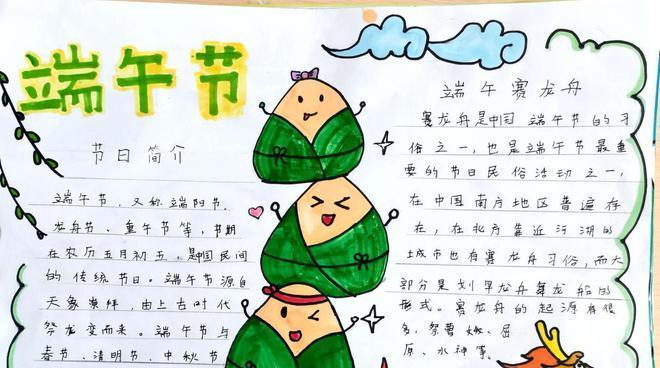 端午节
节日简介
端午节，又称端阳节、
龙舟节、重午节等，节期
在农历五月初五，是中国民间
的传统节日。端午节源自
天象崇拜，由上古时代
祭龙变而来。端午节与
春节、清明节、中秋节
端午赛龙舟
赛龙舟是中国端午节的习
俗之一，也是端午节最重
要的节日民俗活动之一，
在中国南方地区普遍存
在，在北方靠近河湖的
城市也有赛龙舟习俗，而大
部分是划旱龙舟舞龙船的
形式。赛龙舟的起源有很
多，祭曹娥、屈
原、水神等